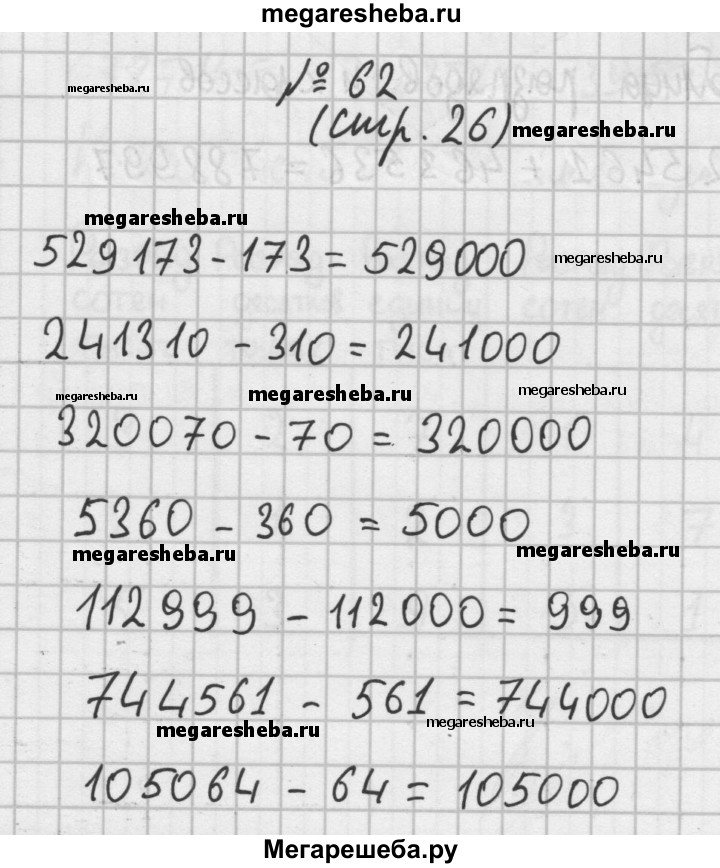 megaresheba.ru
№ 62
megaresheba.ru
(стр. 26)
megaresheba.ru
megaresheba.ru
529173 - 173 = 529000
megaresheba.ru
241310 - 310 = 241000
megaresheba.ru
megaresheba.ru
megaresheba.ru
320070 - 70 = 320000
5360 - 360 = 5000
megaresheba.ru
megaresheba.ru
112999 - 112000 = 999
744561 - 561 = 744000
megaresheba.ru
megaresheba.ru
105064 - 64 = 105000
Мегарешеба.ру